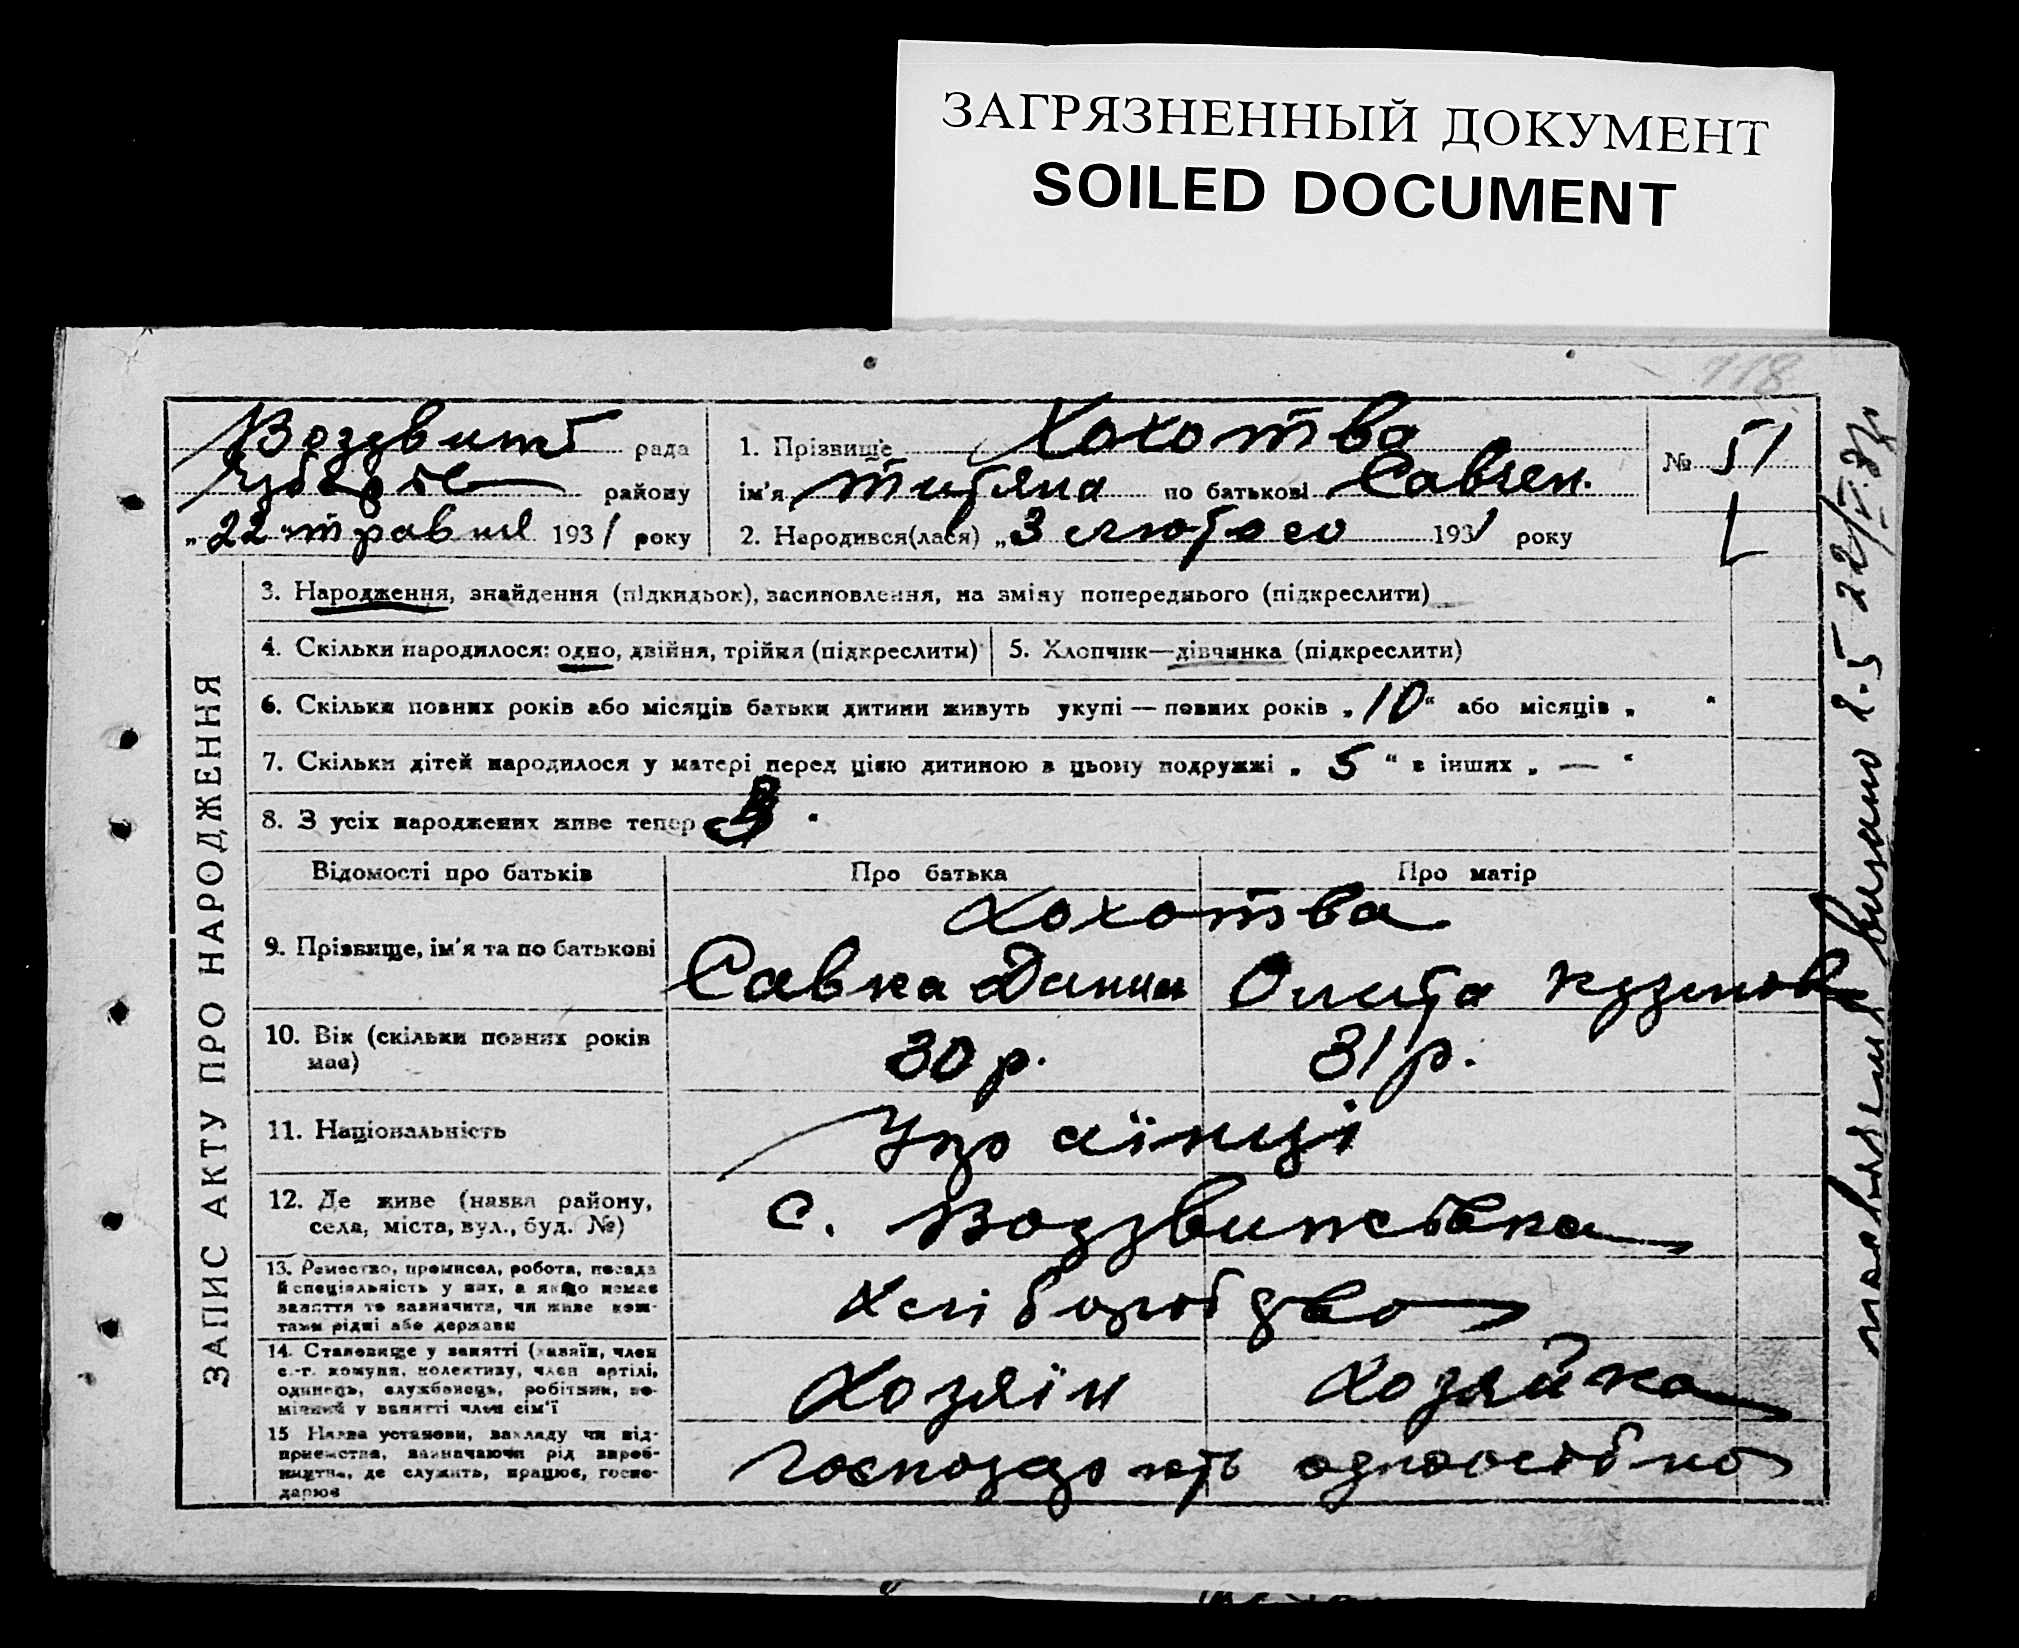 ЗАГРЯЗНЕННЫЙ ДОКУМЕНТ
SOILED DOCUMENT
118
Воздвиж рада
району
„22" травня 1931 року
1. Прізвище Хохотва
ім'я Титяна по батькові Савген.
2. Народився(лася) „3 лютого 1931 року
№ 51
ЗАПИС АКТУ ПРО НАРОДЖЕННЯ
3. Народження, знайдення (підкидьок), засиновлення, на зміну попереднього (підкреслити)
4. Скільки народилося: одно, двійня, трійня (підкреслити)
5. Хлопчик—дівчинка (підкреслити)
6. Скільки повних років або місяців батьки дитини живуть укупі — повних років „10" або місяців „ "
7. Скільки дітей народилося у матері перед цією дитиною в цьому подружжі „ 5 " в інших „ — "
8. З усіх народжених живе тепер 3 "
Відомості про батьків
Про батька
Про матір
9. Прізвище, ім'я та по батькові
Хохотва
Савка Данил
Олита Кузмов
10. Вік (скільки повних років має)
30 р.
31 р.
11. Національність
Українці
12. Де живе (назва району,
села, міста, вул., буд. №)
с. Воздвиженка
13. Ремество, промисел, робота, посада
й спеціяльність у них, а якщо немає
заняття то зазначити, чи живе кош-
тами рідні або держави
хліборобство
14. Становище у занятті (хазяїн, член
с.-г. комуни, колективу, член артілі,
одинець, службовець, робітник, по-
мічний у занятті член сім'ї
Хозяїн
Хозяйка
15 Назва установи, закладу чи під-
приємства, зазначаючи рід вироб-
ництва, де служить, працює, госпо-
дарює
господарють одноосібно